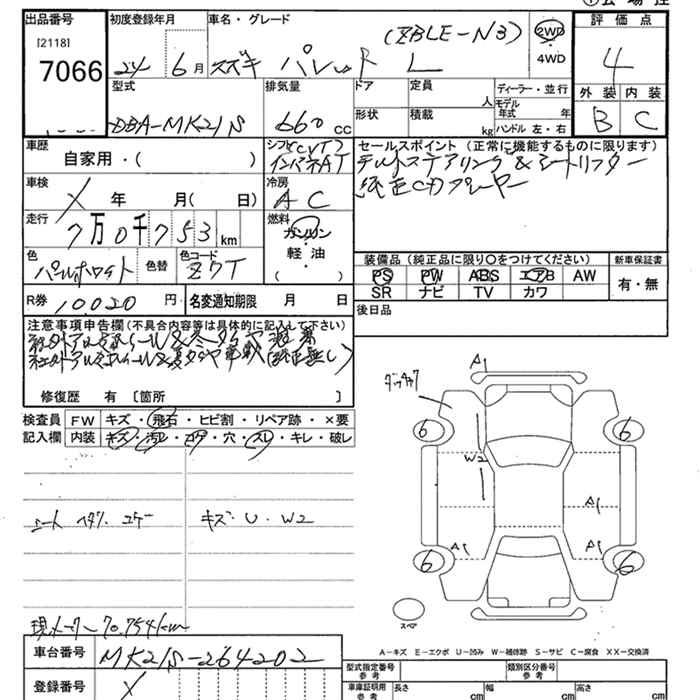 出品番号
[2118]
7066
初度登録年月
24年6月
車名・グレード
スズキ パレット L
(ZBLE-N3)
2WD
4WD
評価点
4
外装 内装
B C
型式
DBA-MK21S
排気量
660 cc
ドア
形状
定員
人
積載
kg
ディーラー・並行
モデル年式 年
ハンドル 左・右
車歴
自家用・( )
シフト (CVT)
インパネAT
セールスポイント(正常に機能するものに限ります)
チルトステアリング & シートリフター
純正CDプレーヤー
車検
X 年 月( 日)
冷房
AC
走行
7万0千753km
燃料
ガソリン
・
軽油
( )
色
パールホワイト
色替
色コード
Z7T
装備品(純正品に限り○をつけてください)
PS PW ABS エアB AW
SR ナビ TV カワ
新車保証書
有・無
R券 10020 円
名変通知期限 月 日
後日品
注意事項申告欄(不具合内容等は具体的に記入して下さい)
修復歴 有 〔箇所 〕
検査員 FW キズ・飛石・ヒビ割・リペア跡・×要
記入欄 内装 キズ・汚レ・コゲ・穴・スレ・キレ・破レ
シート ヘタリ. コゲー キズ・U・W2
A1
6 6
W2
A1
A1 A1
6 6
スペア
A-キズ E-エクボ U-凹み W-補修跡 S-サビ C-腐食 XX-交換済
現メーター 70,754km
車台番号 MK21S-264202
登録番号 X
型式指定番号 参考
類別区分番号 参考
車庫証明用 参考 長さ cm 幅 cm 高さ cm